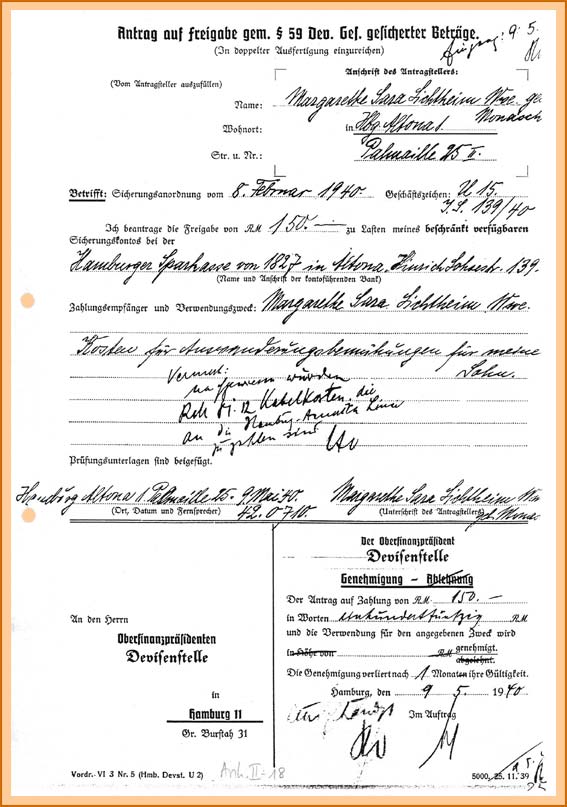 Antrag auf Freigabe gem. § 59 Dev. Ges. gesicherter Beträge.
(In doppelter Ausfertigung einzureichen)
9. 5.
(Vom Antragsteller auszufüllen)
Anschrift des Antragstellers:
Name: Margarethe Sara Lichtheim Wwe. ge
Monasch
Wohnort: in Hbg. Altona 1.
Str. u. Nr.: Palmaille 25 II.
Betrifft: Sicherungsanordnung vom 8. Februar 1940 Geschäftszeichen: U 15.
J.S. 139/40
Ich beantrage die Freigabe von RM 150.— zu Lasten meines beschränkt verfügbaren
Sicherungskontos bei der
Hamburger Sparkasse von 1827 in Altona, Hinrich Lohsestr. 139.
(Name und Anschrift der kontoführenden Bank)
Zahlungsempfänger und Verwendungszweck: Margarethe Sara Lichtheim Wwe.
Kosten für Auswanderungsbemühungen für meine
Sohn.
Vermerk:
würden
12 Kabelkosten, die
an die Hamburg-Amerika Linie
zu zahlen sind
Prüfungsunterlagen sind beigefügt.
Hamburg Altona 1. Palmaille 25. 9. Mai 40. Margarethe Sara Lichtheim Ww
(Ort, Datum und Fernsprecher) 42.07.10. (Unterschrift des Antragstellers) geb. Monas
An den Herrn
Oberfinanzpräsidenten
Devisenstelle
in
Hamburg 11
Gr. Burstah 31
Der Oberfinanzpräsident
Devisenstelle
Genehmigung – Ablehnung
Der Antrag auf Zahlung von RM 150.—
in Worten einhundertfünfzig RM
und die Verwendung für den angegebenen Zweck wird
in Höhe von RM genehmigt.
abgelehnt.
Die Genehmigung verliert nach 1 Monaten ihre Gültigkeit.
Hamburg, den 9 5. 1940
Im Auftrag
Vordr. VI 3 Nr. 5 (Hmb. Devst. U 2) Anh. II-18
5000, 25. 11. 39